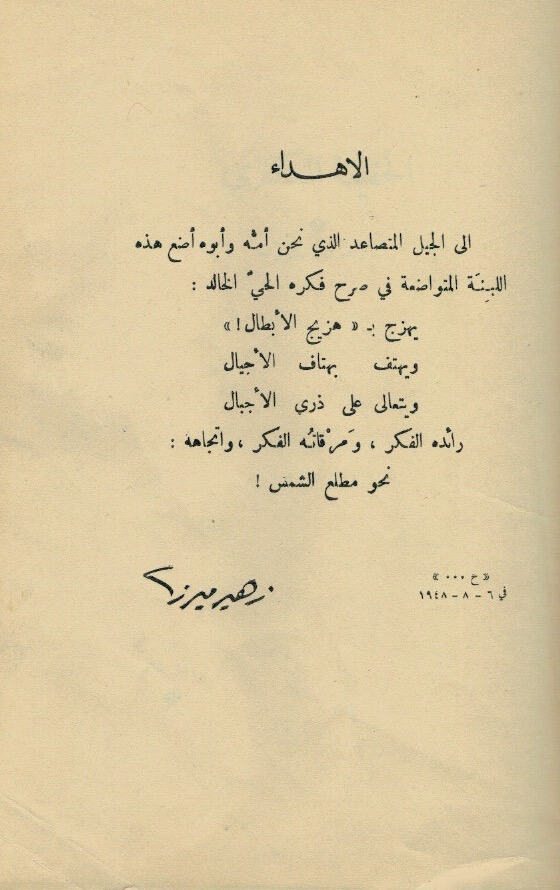 الاهداء
الى الجيل المتصاعد الذي نحن أمّه وأبوه أضع هذه
اللبِنَة المتواضعة في صرح فكره الحيّ الخالد :
يهزج بـ « هزيج الأبطال ! »
ويهتف بهتاف الأجيال
ويتعالى على ذرى الأجبال
رائده الفكر ، وَمرْقاتُه الفكر ، واتجاهه :
نحو مطلع الشمس !
« ح ... »
في ٦ - ٨ - ١٩٤٨
زهير ميرزا